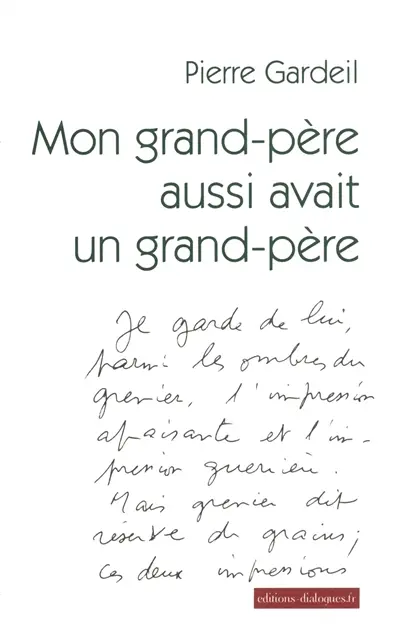 Pierre Gardeil
Mon grand-père
aussi avait
un grand-père
Je garde de lui,
parmi les ombres du
grenier, l'impression
apaisante et l'im-
pression guerrière.
Mais grenier dit
réserve de grains;
ces deux impressions
editions-dialogues.fr